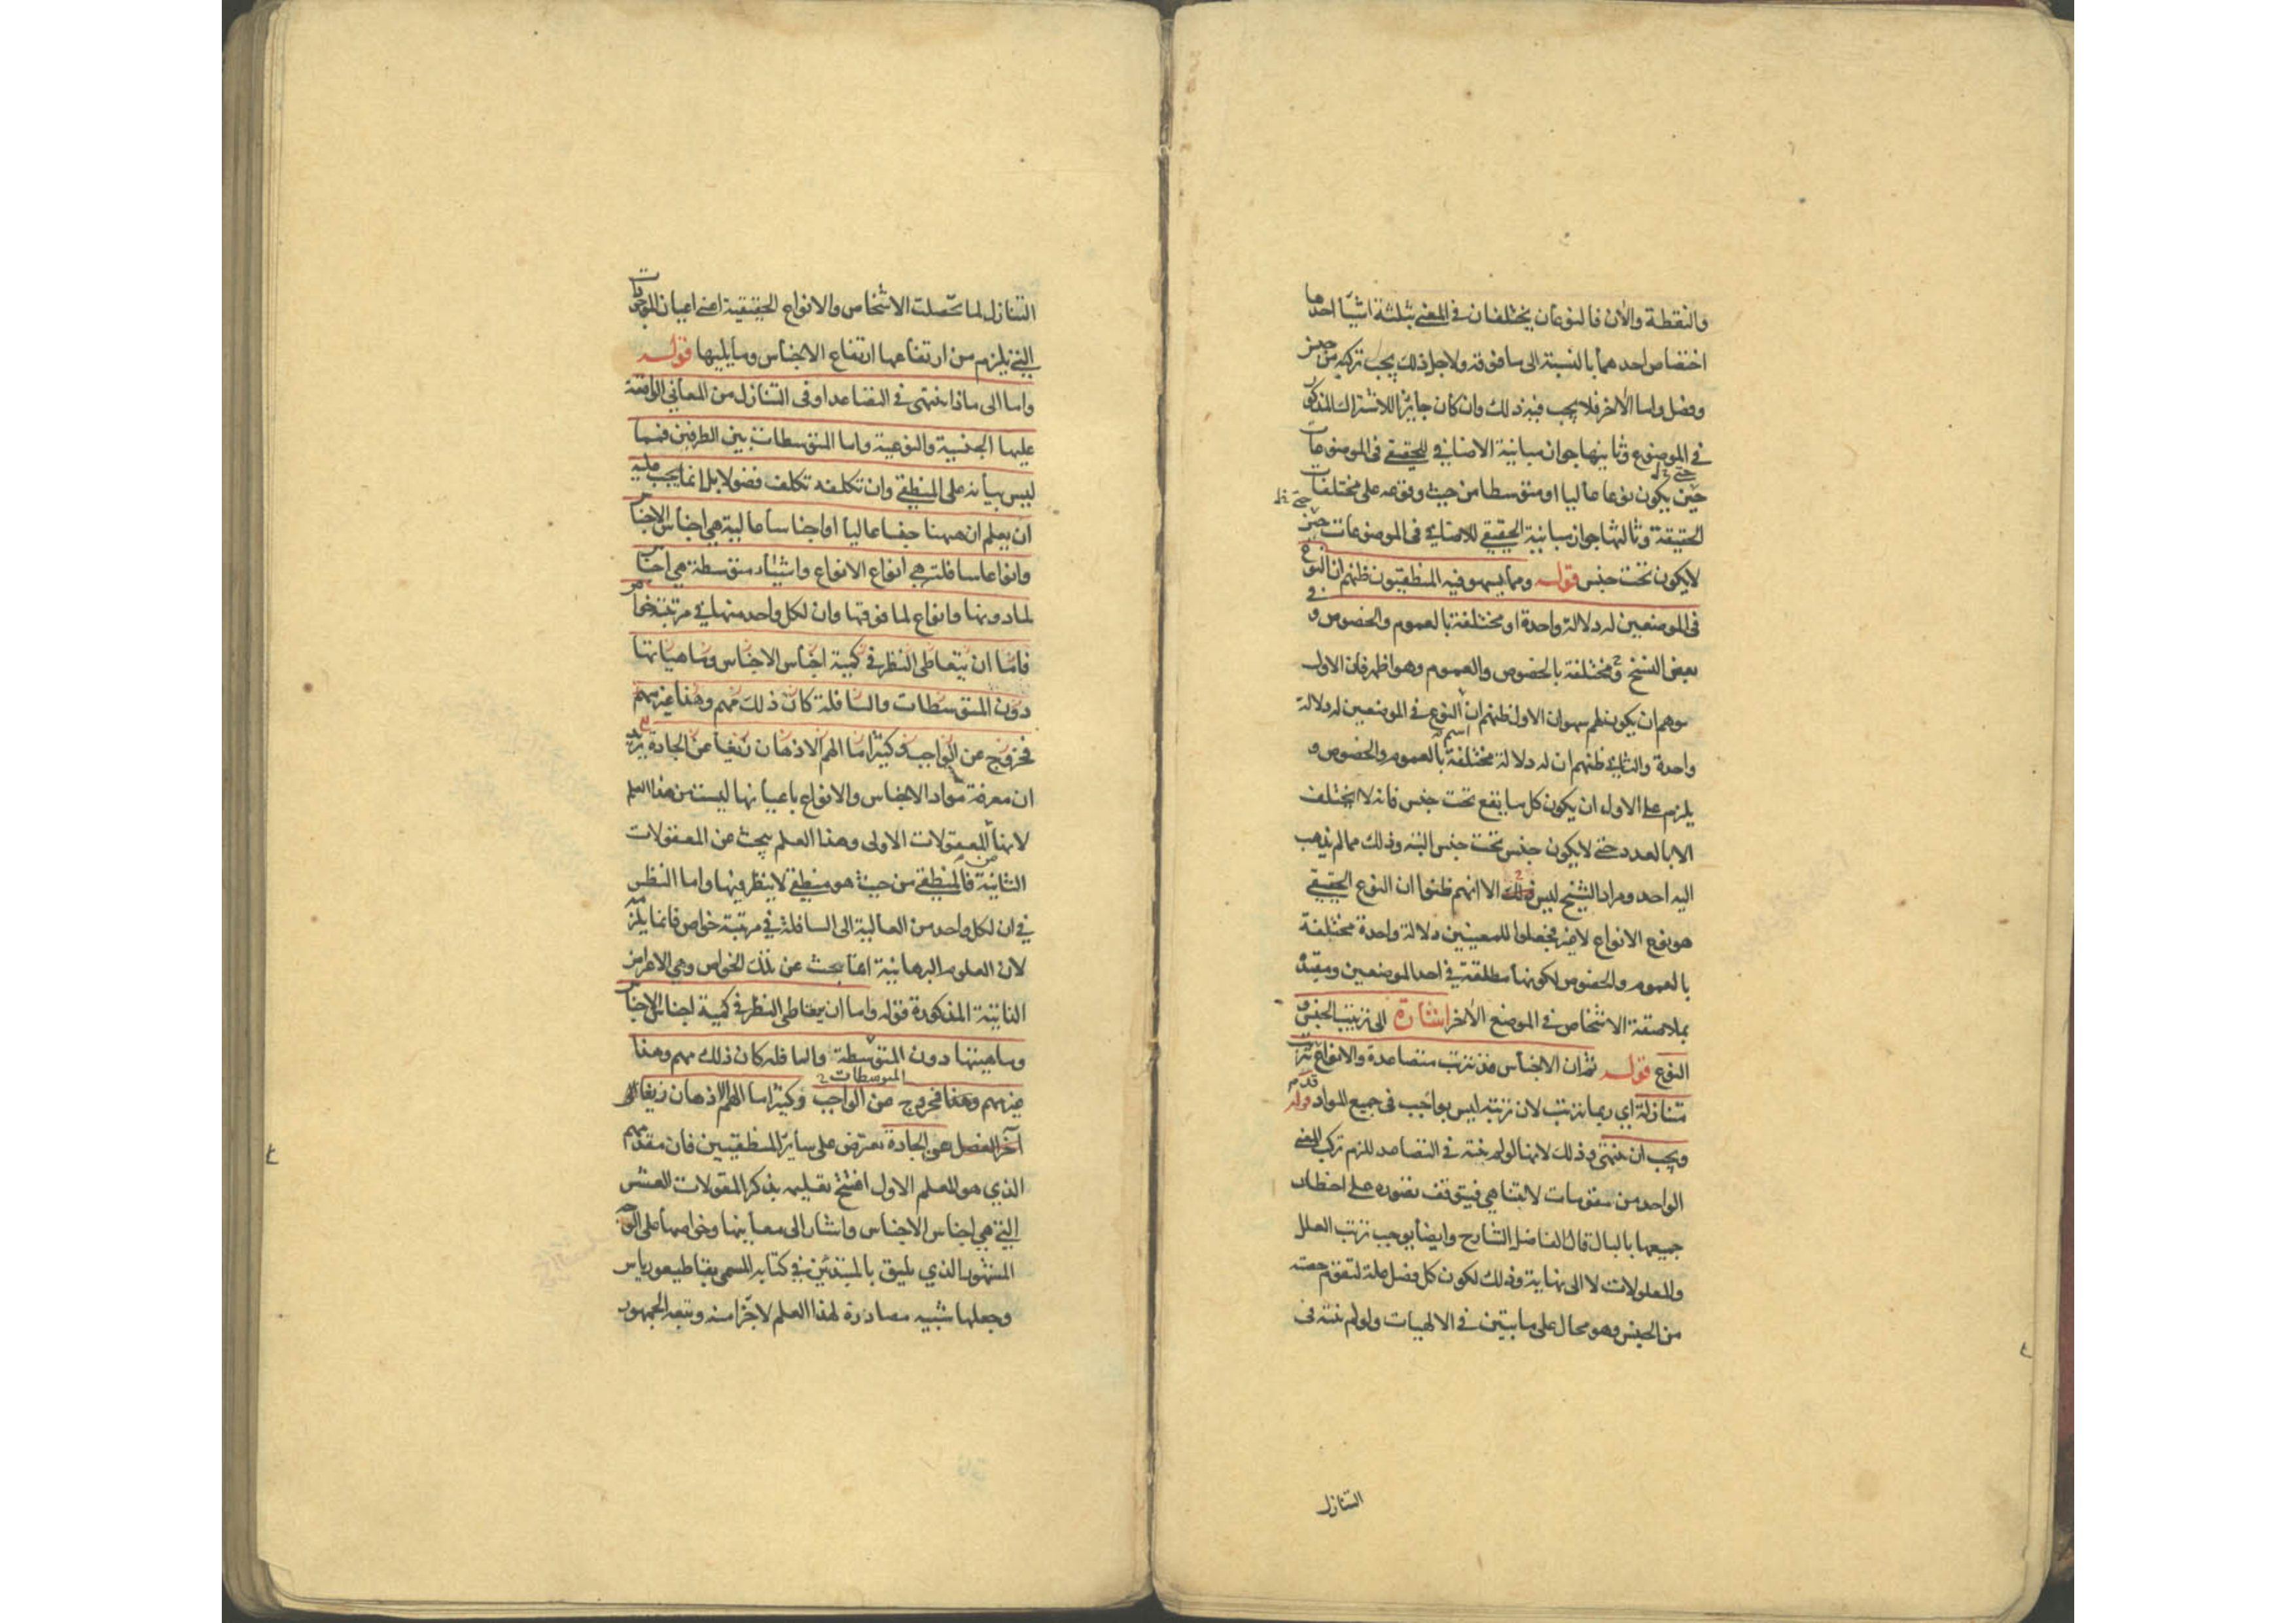 والنقطة والآن فالنوعان يختلفان في المعنى بثلثة اشيآ احدها
اختصاص احدهما بالنسبة الى ما فوقه ولاجل ذلك يجب تركبه من جنس
وفصل واما الآخر فلا يجب فيه ذلك وان كان جايزا للاشتراك المذكور
في الموضوع وثانيها جواز مباينة الاضافي للحقيقي في الموضوعات
حتى خل
حين يكون نوعا عاليا او متوسطا من حيث وقوعه على مختلفات
حتى خل
الحقيقة وثالثها جواز مباينة الحقيقي للاضافي في الموضوعات حين
لا يكون تحت جنس قوله ومما يسهو فيه المنطقيون ظنهم ان النوع
في الموضعين له دلالة واحدة او مختلفة بالعموم والخصوص و في
بعض النسخ ومختلفة بالخصوص والعموم وهو اظهر فان الاول
يوهم ان يكون لهم سهوان الاول ظنهم ان النوع في الموضعين له دلالة
واحدة والثاني ظنهم ان له دلالة مختلفة بالعموم والخصوص و
يلزم على الاول ان يكون كل ما يقع تحت جنس فانه لا يختلف
الا بالعدد حتى لا يكون جنس تحت جنس البتة وذلك مما لم يذهب
اليه احد ومراد الشيخ ليس ذلك الا انهم ظنوا ان النوع الحقيقي
هو نوع الانواع لا غير فجعلوا للمعنيين دلالة واحدة مختلفة
بالعموم والخصوص لكونها مطلقة في احد الموضعين ومقيدة
بملاصقة الاشخاص في الموضع الآخر اشارة الى ترتيب الجنس و
النوع قوله ثم ان الاجناس قد تترتب متصاعدة والانواع تترتب
متنازلة اي ربما تترتب لان ترتبه ليس بواجب في جميع المواد قوله
ويجب ان تنتهي وذلك لانها لو لم تنته في التصاعد للزم تركب المعنى
الواحد من مقومات لا تتناهى فيتوقف تصوره على اخطار
جميعها بالبال قال الفاضل الشارح وايضا يوجب ترتب العلل
والمعلولات لا الى نهاية وذلك لكون كل فصل علة لتقوم حصته
من الجنس وهو محال على ما يتبين في الالهيات ولو لم تنته في
التنازل
التنازل لما تحصلت الاشخاص والانواع الحقيقية اعني اعيان الموجودات
التي يلزم من ارتفاعها ارتفاع الاجناس وما يليها قوله
واما الى ماذا تنتهي في التصاعد او في التنازل من المعاني الواقعة
عليها الجنسية والنوعية واما المتوسطات بين الطرفين فمما
ليس بيانه على المنطقي وان تكلفه تكلف فضولا بل انما يجب عليه
ان يعلم ان ههنا جنسا عاليا او اجناسا عالية هي اجناس الاجناس
وانواعا سافلة هي انواع الانواع واشياء متوسطة هي اجناس
لما دونها وانواع لما فوقها وان لكل واحد منها في مرتبته خواص
فاما ان يتعاطى النظر في كمية اجناس الاجناس وماهياتها
دون المتوسطات والسافلة كان ذلك مهم وهذا غير مهم
فخروج عن الواجب وكثيرا ما الهم الاذهان زيغا عن الجادة يريد
ان معرفة مواد الاجناس والانواع باعيانها ليست من هذا العلم
لانها المعقولات الاولى وهذا العلم يبحث عن المعقولات
الثانية فالمنطقي من حيث هو منطقي لا ينظر فيها واما النظر
في ان لكل واحد من العالية الى السافلة في مرتبة خواص فانما يلزمه
لان العلوم البرهانية انما تبحث عن تلك الخواص وهي الاعراض
الذاتية المذكورة قوله واما ان يتعاطى النظر في كمية اجناس الاجناس
وماهيتها دون المتوسطة والسافلة كان ذلك مهم وهذا
المتوسطات
غير مهم وهذا فخروج عن الواجب وكثيرا ما الهم الاذهان زيغا الى
آخر الفصل عن الجادة تعرض على سائر المنطقيين فان مقدمهم
الذي هو المعلم الاول افتتح تعليمه بذكر المقولات العشر
التي هي اجناس الاجناس واشار الى معانيها وخواصها على الوجه
المشهور الذي يليق بالمبتدئين في كتابه المسمى بقاطيغورياس
وجعلها شبيه مصادرة لهذا العلم لا جزا منه وتبعه الجمهور